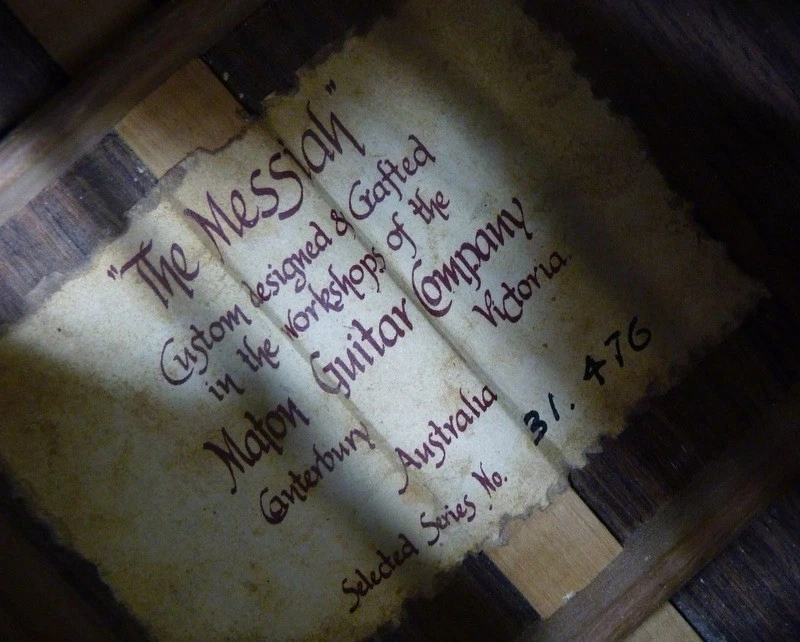 "The Messiah"
Custom designed & Crafted
in the workshops of the
Maton Guitar Company
Canterbury Victoria.
Australia
Selected Series No. 31. 476